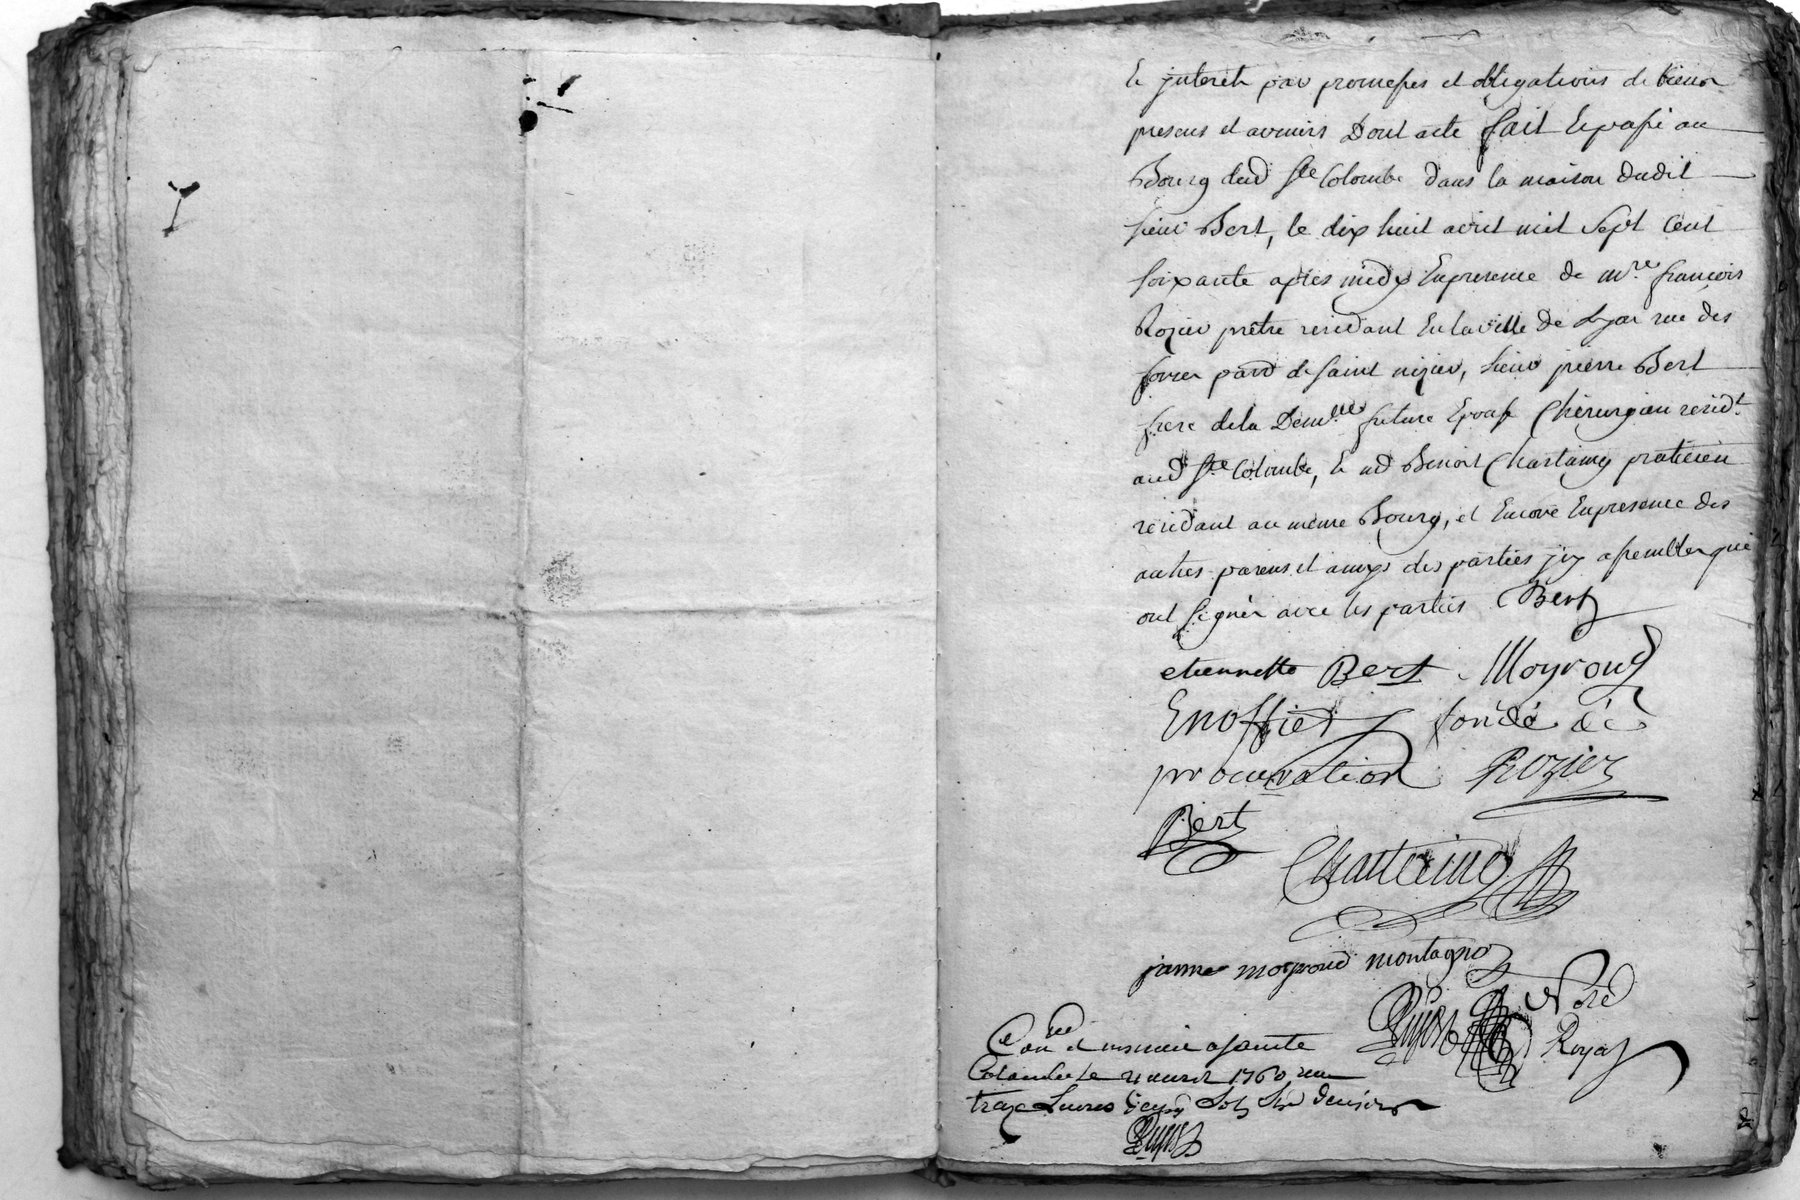 Et jnterets par promesses et obligations de biens
presens et avenirs Dont acte fait Et passé au
Bourg dud Ste Colombe dans la maison dudit
sieur Bert, le dix huit avril mil sept cent
soixante après midy En presence de mre françois
Rozier prêtre residant En la ville de Lyon rue des
forces parr de saint nizier, sieur pierre Bert
frere de la Demlle future Epouse Chirurgien residt
aud Ste Colombe, Et Benoit Chantemy praticien
residant au même Bourg, et Encore En presence des
autres parens et amys des parties jcy assemblez qui
ont signés avec les parties Bert
etiennette Bert Moyroud
Enoffiet fondé de
procuration Rozier
Bert
Chantemy
janne moyroud montagnio
Nore
Royal
Conlle et insinué a sainte
Colombe le 21 avril 1760 reçu
treze Livres sols six deniers